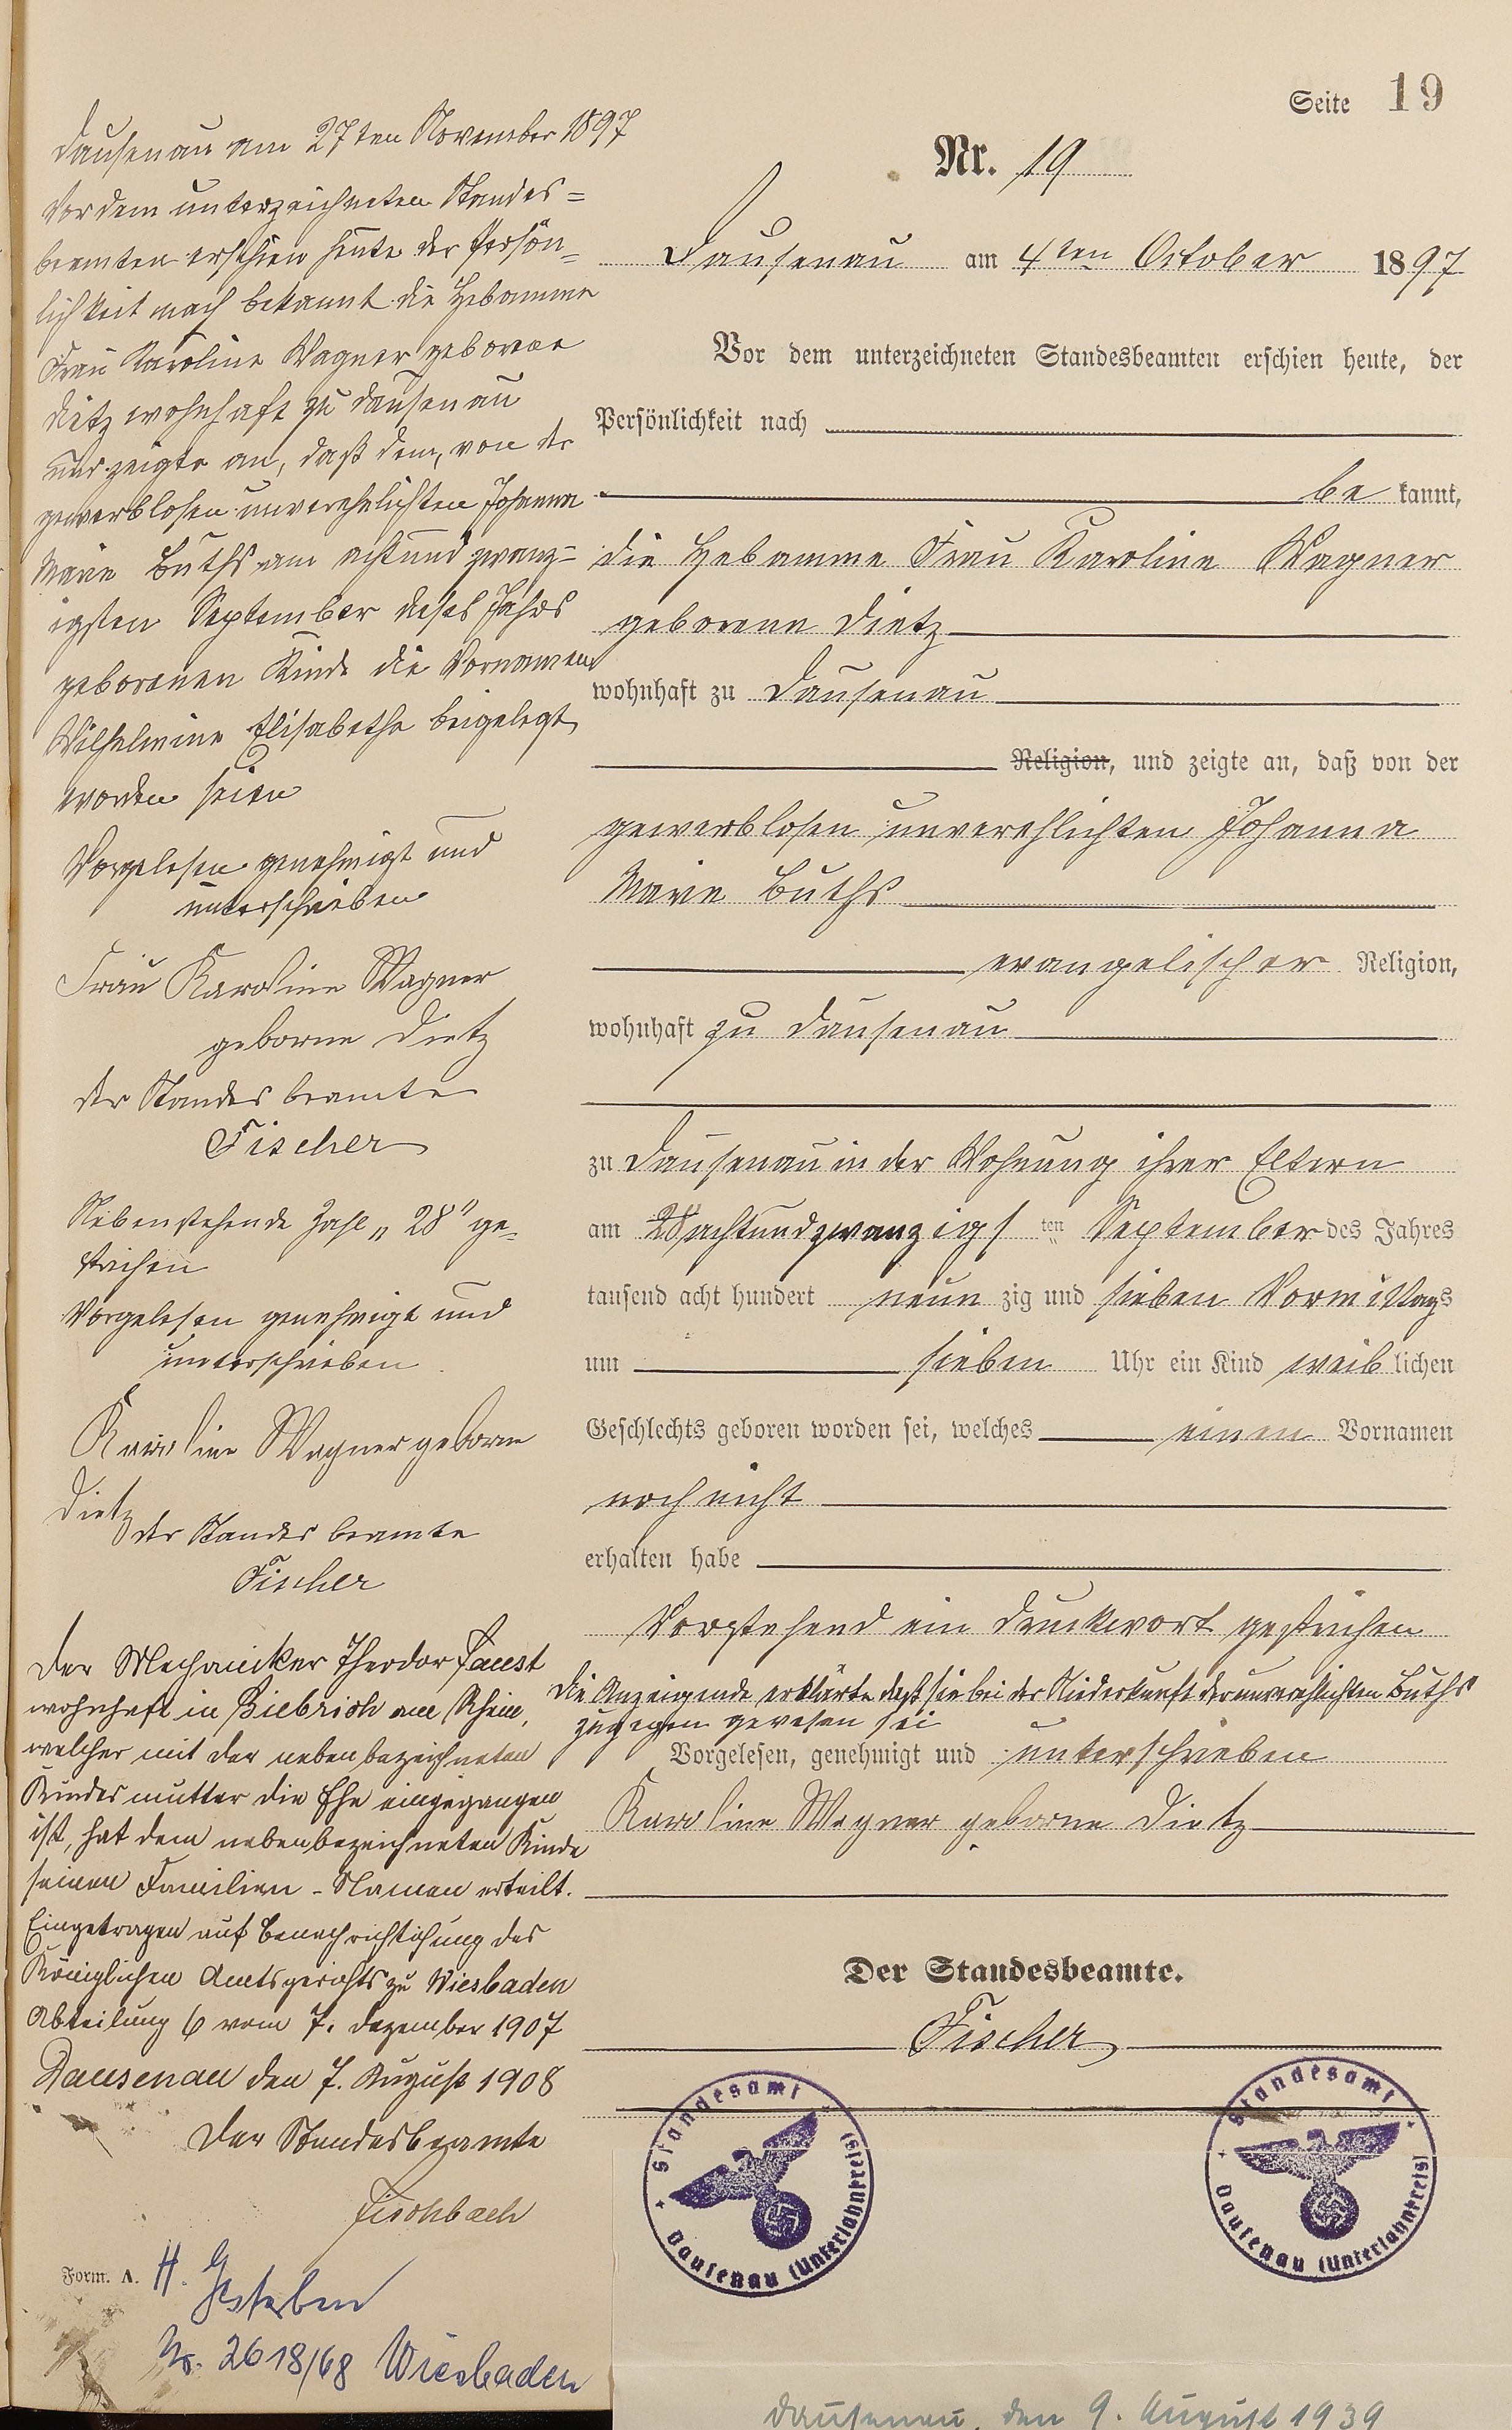 Seite 19
Nr. 19
Dausenau am 4ten October 1897
Vor dem unterzeichneten Standesbeamten erschien heute, der
Persönlichkeit nach
be kannt,
die Hebamme Frau Karoline Wagner
geborene Dietz
wohnhaft zu Dausenau
Religion, und zeigte an, daß von der
gewerblosen unverehlichten Johanna
Marie Buths
evangelischer Religion,
wohnhaft zu Dausenau
zu Dausenau in der Wohnung ihrer Eltern
am 28 achtundzwanzigs ten September des Jahres
tausend acht hundert neun zig und sieben Vormittags
um sieben Uhr ein Kind weib lichen
Geschlechts geboren worden sei, welches einen Vornamen
noch nicht
erhalten habe
Vorstehend ein Druckwort gestrichen
Die Anzeigende erklärte daß sie bei der Niederkunft der unverehlichten Buths
zugegen gewesen sei
Vorgelesen, genehmigt und unterschrieben
Karoline Wagner geborne Dietz
Der Standesbeamte.
Fischer
Dausenau am 27ten November 1897
Vor dem unterzeichneten Standes=
beamten erschien heute der Persön=
lichkeit nach bekannt die Hebamme
Frau Karoline Wagner geborne
Dietz wohnhaft zu Dausenau
und zeigte an, daß dem, von der
gewerblosen unverehelichten Johanna
Marie Buths am achtundzwanz=
igsten September dieses Jahrs
geborenen Kinde die Vornamen
Wilhelmine Elisabetha beigelegt
worden seien
Vorgelesen genehmigt und
unterschrieben
Frau Karoline Wagner
geborne Dietz
der Standesbeamte
Fischer
Nebenstehende Zahl „28" ge=
strichen
Vorgelesen genehmigt und
unterschrieben
Karoline Wagner geborne
Dietz
der Standesbeamte
Fischer
Der Mechaniker Theodor Faust
wohnhaft in Biebrich am Rhein,
welcher mit der nebenbezeichneten
Kindesmutter die Ehe eingegangen
ist, hat dem nebenbezeichneten Kinde
seinen Familien-Namen erteilt.
Eingetragen auf Benachrichtigung des
Königlichen Amtsgerichts zu Wiesbaden
Abteilung 6 vom 7. Dezember 1907
Dausenau den 7. August 1908
Der Standesbeamte
Fischbach
Form. A.
H. Gestorben
Nr. 2618/68 Wiesbaden
Standesamt
Dausenau (Unterlahnkreis)
Standesamt
Dausenau (Unterlahnkreis)
Dausenau, den 9. August 1939